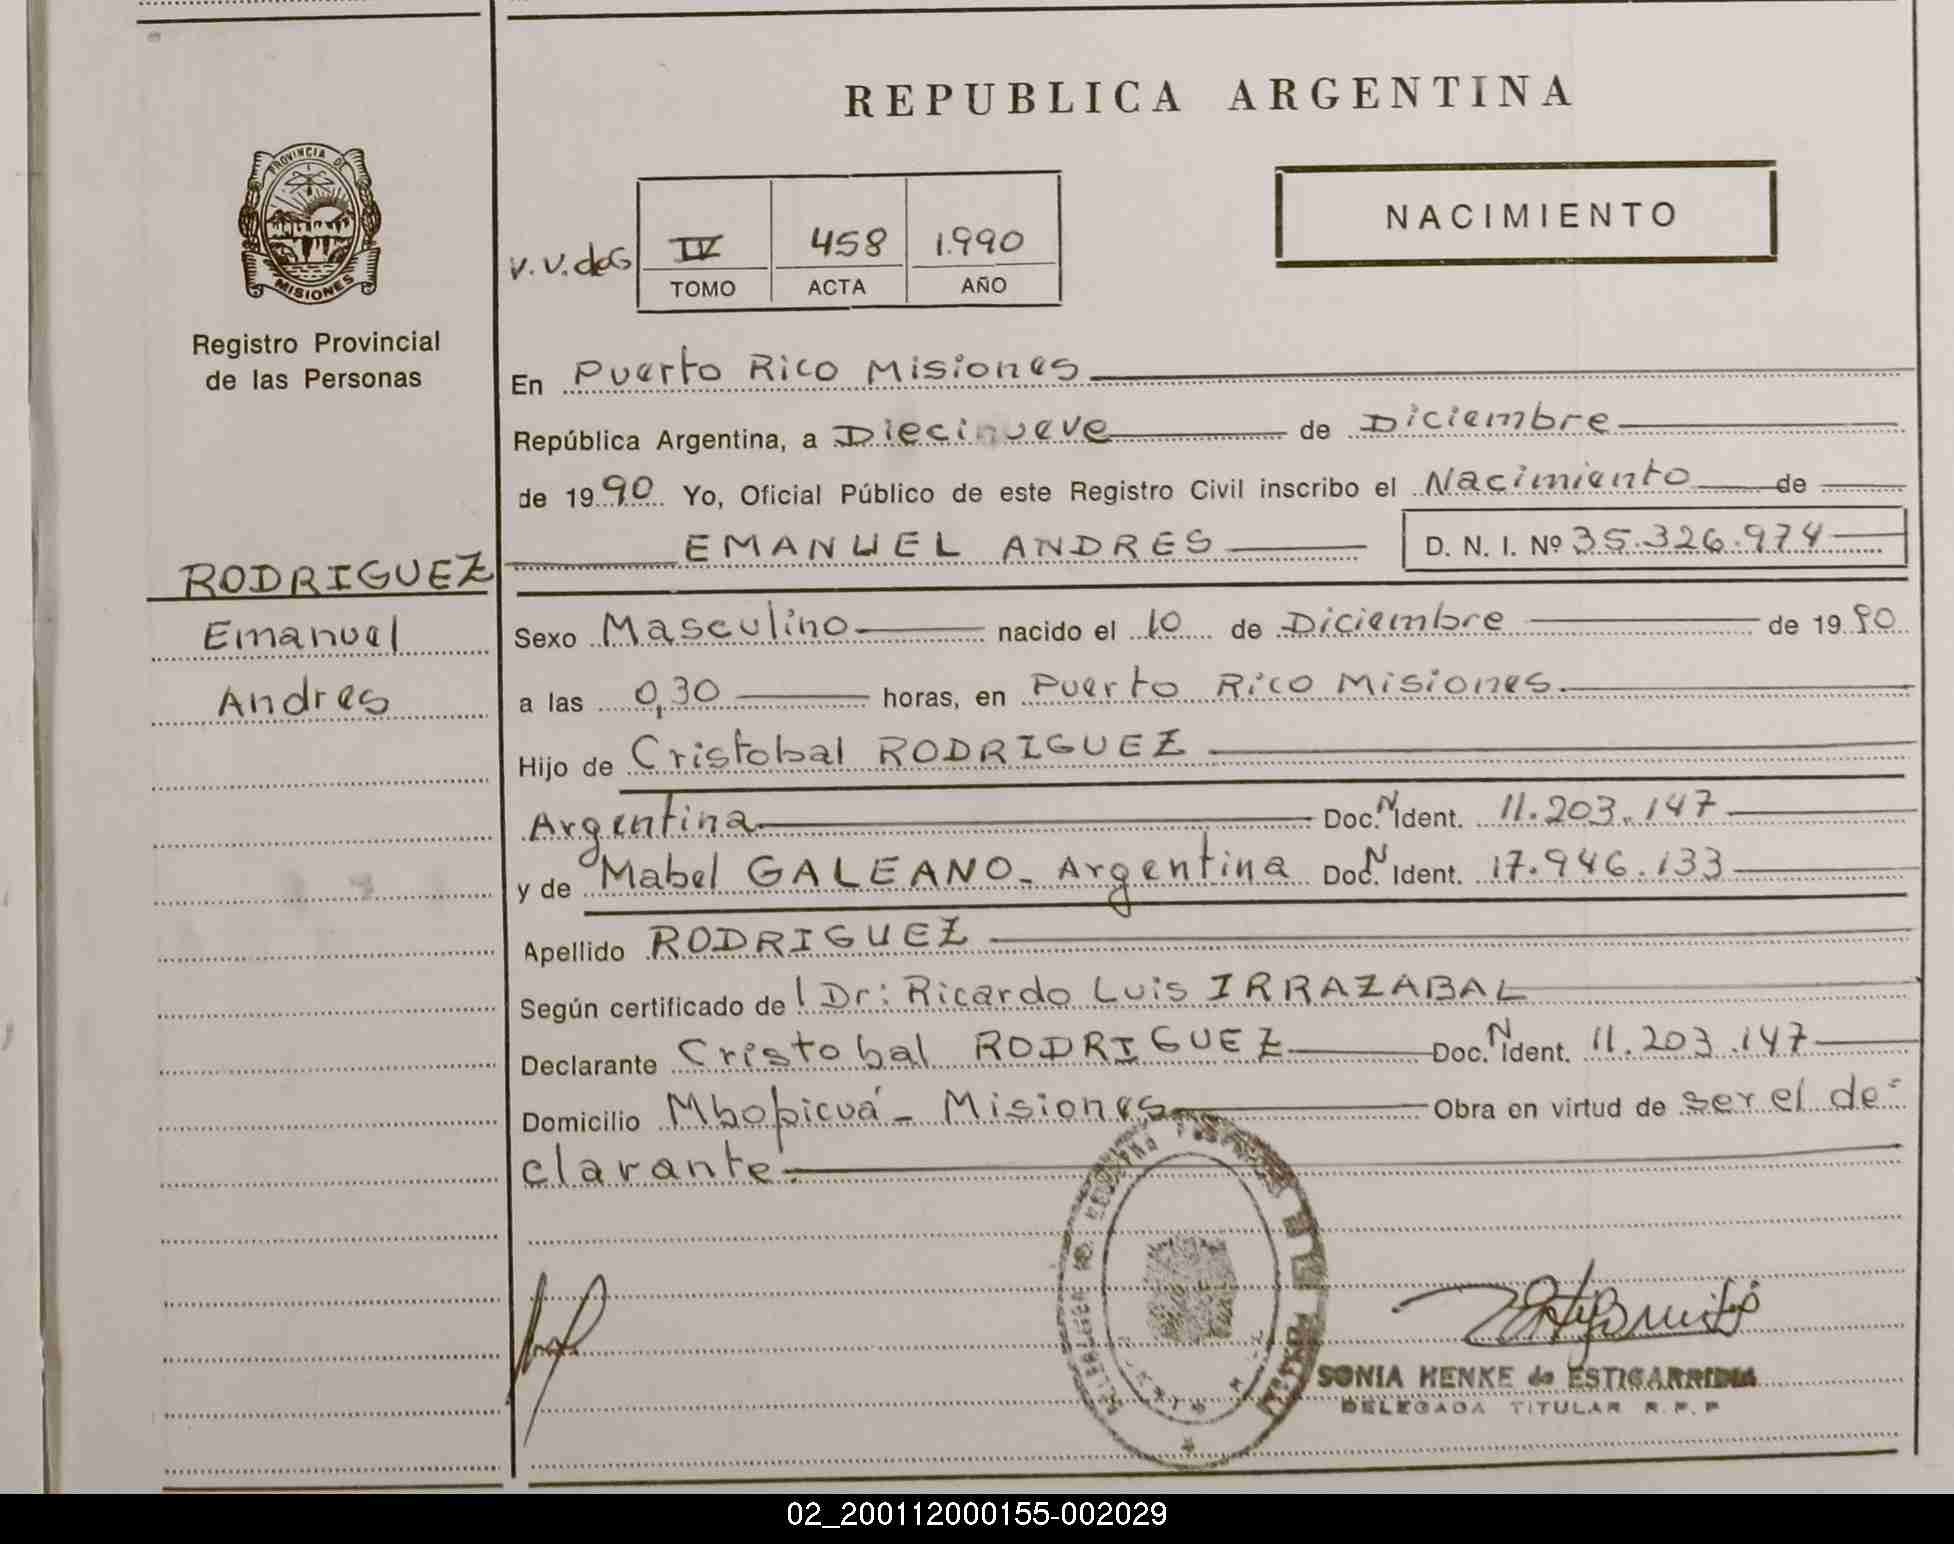 REPUBLICA ARGENTINA
PROVINCIA DE
MISIONES
Registro Provincial
de las Personas
RODRIGUEZ
Emanuel
Andres
V.V.deG IV 458 1.990
TOMO ACTA AÑO
NACIMIENTO
En Puerto Rico Misiones
República Argentina, a Diecinueve de Diciembre
de 1990 Yo, Oficial Público de este Registro Civil inscribo el Nacimiento de
EMANUEL ANDRES D. N. I. Nº 35.326.974
Sexo Masculino nacido el 10 de Diciembre de 1990
a las 0,30 horas, en Puerto Rico Misiones
Hijo de Cristobal RODRIGUEZ
Argentina Doc. N Ident. 11.203.147
y de Mabel GALEANO - Argentina Doc. N Ident. 17.946.133
Apellido RODRIGUEZ
Según certificado de l Dr: Ricardo Luis IRRAZABAL
Declarante Cristobal RODRIGUEZ Doc. N Ident. 11.203.147
Domicilio Mbopicuá - Misiones Obra en virtud de ser el de=
clarante.
SONIA HENKE de ESTIGARRIBIA
DELEGADA TITULAR R.P.P
02_200112000155-002029